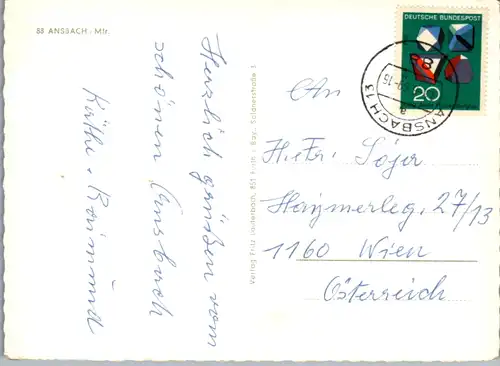 88 ANSBACH - Mfr.
Herzlich grüßen vom
schönen Ansbach
Käthe + Raimund
Verlag Fritz Lauterbach, 851 Fürth i. Bay., Soldnerstraße
DEUTSCHE BUNDESPOST
20
ANSBACH 13
a
An
H. e Fr. Sojer
Haymerleg. 27/13
1160 Wien
Österreich